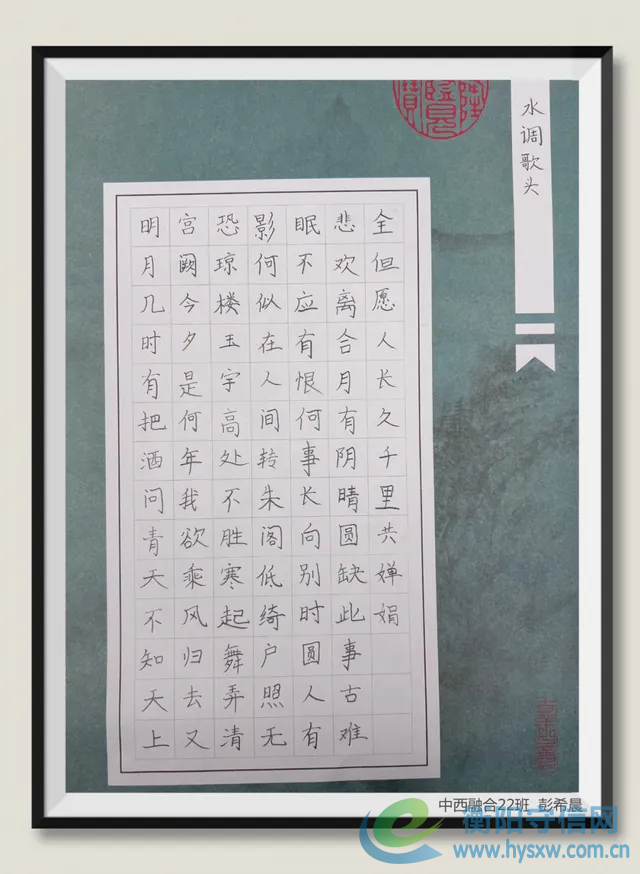 水调歌头
明月几时有把酒问青天不知天上
宫阙今夕是何年我欲乘风归去又
恐琼楼玉宇高处不胜寒起舞弄清
影何似在人间转朱阁低绮户照无
眠不应有恨何事长向别时圆人有
悲欢离合月有阴晴圆缺此事古难
全但愿人长久千里共婵娟
中西融合22班 彭希晨
衡阳守信网
www.hysxw.com.cn